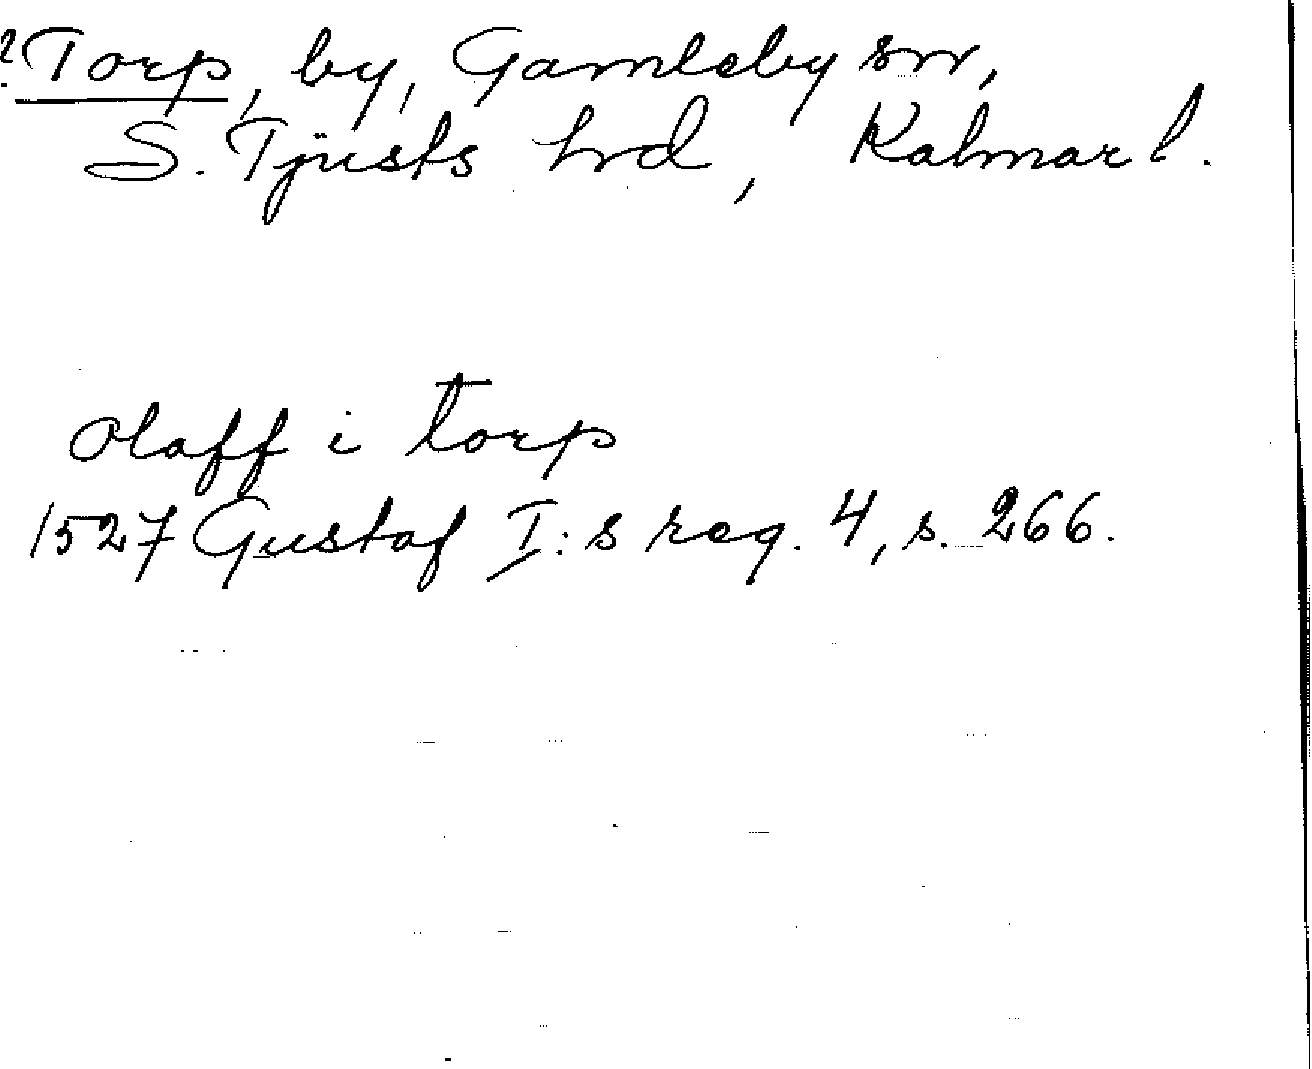 ?Torp, by, Gamleby sn,
S. Tjusts hd, Kalmar l.
Olaff i torp
1527 Gustaf I:s reg. 4, s. 266.